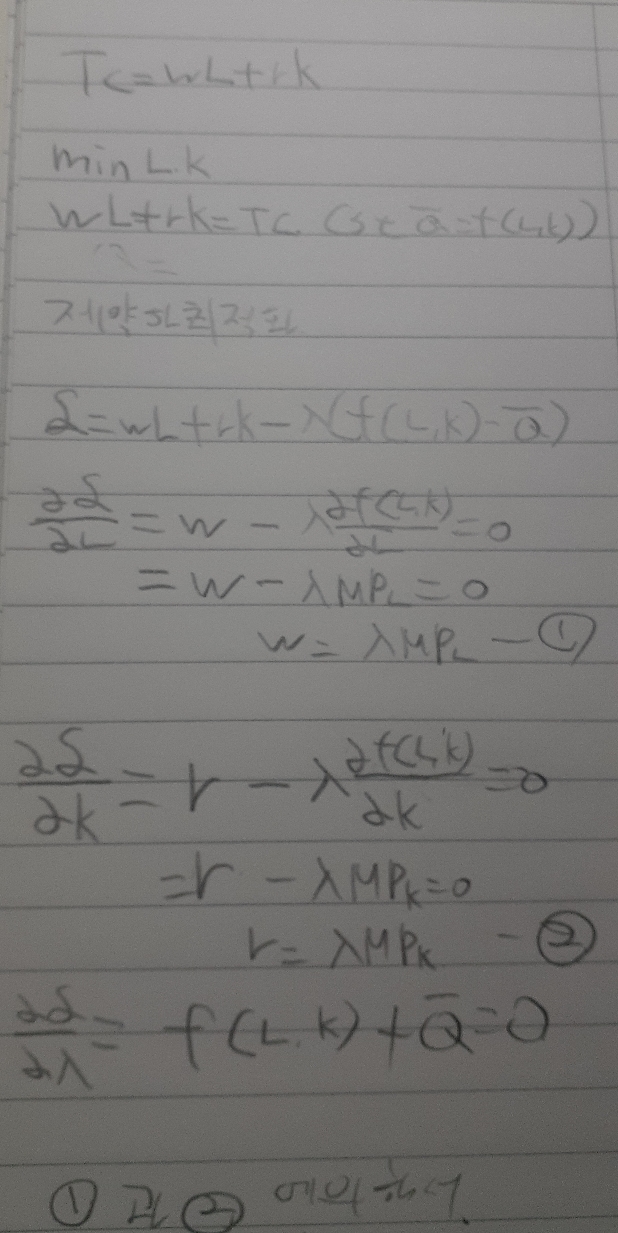 TC=wL+rk
min L.k
wL+rk=TC (st Q̄=f(L,k))
제약하최적화
L=wL+rk-λ(f(L,k)-Q̄)
∂L/∂L = w - λ∂f(L,k)/∂L = 0
= w - λMP_L = 0
w = λMP_L - ①
∂L/∂k = r - λ∂f(L,k)/∂k = 0
= r - λMP_K = 0
r = λMP_K - ②
∂L/∂λ = f(L.k) + Q̄ = 0
① 과 ② 에의해서.